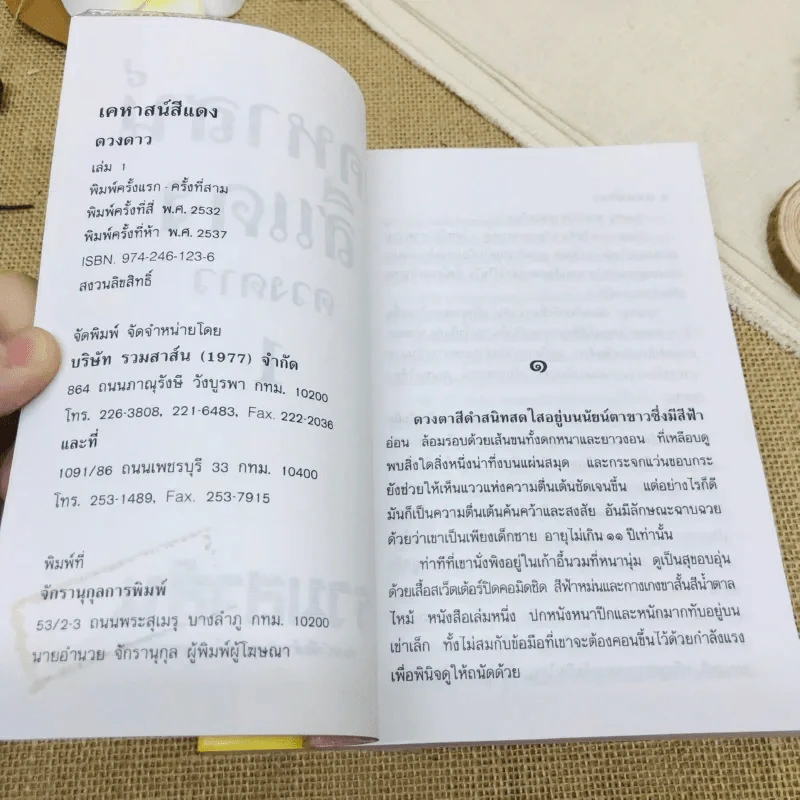 เคหาสน์สีแดง
ดวงดาว
เล่ม 1
พิมพ์ครั้งแรก - ครั้งที่สาม
พิมพ์ครั้งที่สี่ พ.ศ. 2532
พิมพ์ครั้งที่ห้า พ.ศ. 2537
ISBN. 974-246-123-6
สงวนลิขสิทธิ์
จัดพิมพ์ จัดจำหน่ายโดย
บริษัท รวมสาส์น (1977) จำกัด
864 ถนนภาณุรังษี วังบูรพา กทม. 10200
โทร. 226-3808, 221-6483, Fax. 222-2036
และที่
1091/86 ถนนเพชรบุรี 33 กทม. 10400
โทร. 253-1489, Fax. 253-7915
พิมพ์ที่
จักรานุกูลการพิมพ์
53/2-3 ถนนพระสุเมรุ บางลำภู กทม. 10200
นายอำนวย จักรานุกุล ผู้พิมพ์ผู้โฆษณา
๑
ดวงตาสีดำสนิทสดใสอยู่บนนัยน์ตาขาวซึ่งมีสีฟ้า
อ่อน ล้อมรอบด้วยเส้นขนทั้งดกหนาและยาวงอน ที่เหลือบดู
พบสิ่งใดสิ่งหนึ่งน่าทึ่งบนแผ่นสมุด และกระจกแว่นขอบกระ
ยังช่วยให้เห็นแววแห่งความตื่นเต้นชัดเจนขึ้น แต่อย่างไรก็ดี
มันก็เป็นความตื่นเต้นค้นคว้าและสงสัย อันมีลักษณะฉาบฉวย
ด้วยว่าเขาเป็นเพียงเด็กชาย อายุไม่เกิน ๑๑ ปีเท่านั้น
ท่าทีที่เขานั่งพิงอยู่ในเก้าอี้นวมที่หนานุ่ม ดูเป็นสุขอบอุ่น
ด้วยเสื้อสเว็ตเต้อร์ปิดคอมิดชิด สีฟ้าหม่นและกางเกงขาสั้นสีน้ำตาล
ไหม้ หนังสือเล่มหนึ่ง ปกหนังหนาปึกและหนักมากทับอยู่บน
เข่าเล็ก ทั้งไม่สมกับข้อมือที่เขาจะต้องคอนขึ้นไว้ด้วยกำลังแรง
เพื่อพินิจดูให้ถนัดด้วย